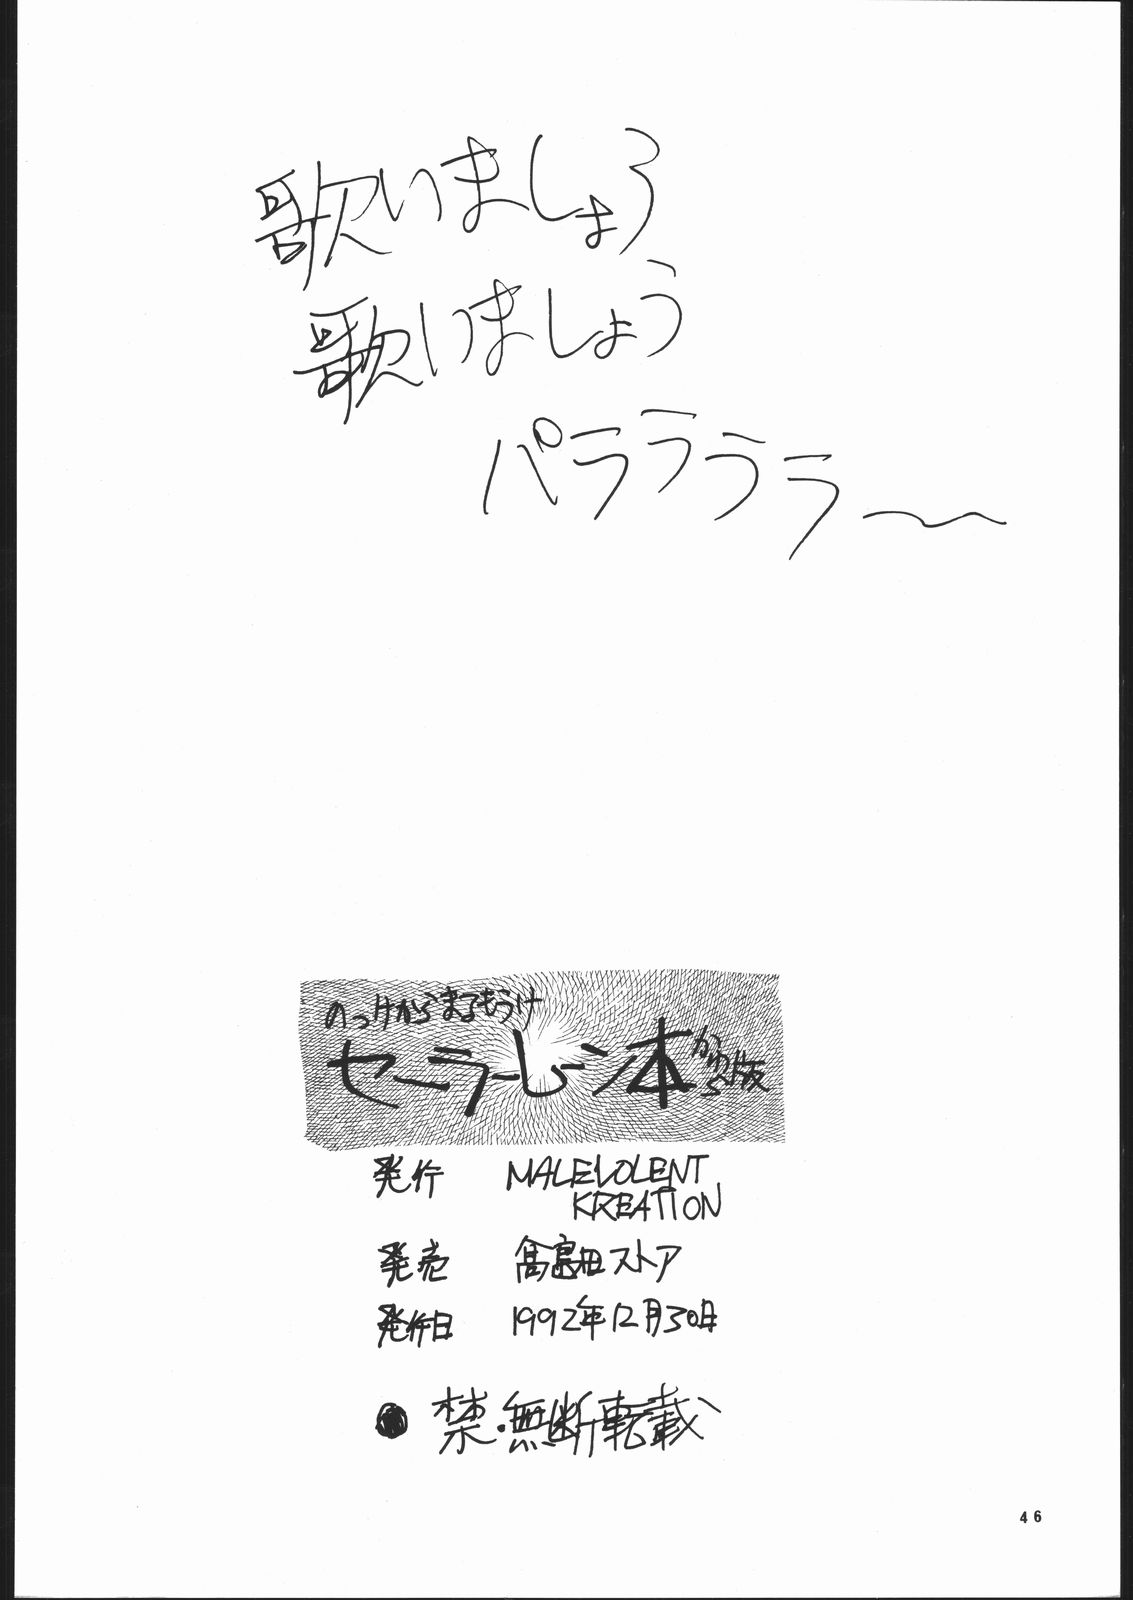 歌いましょう
歌いましょう
パララララ〜
のっけからまるもうけ
セーラームーン本
発行 MALEVOLENT
KREATION
発売 髙島田ストア
発行日 1992年12月30日
● 禁・無断転載
46